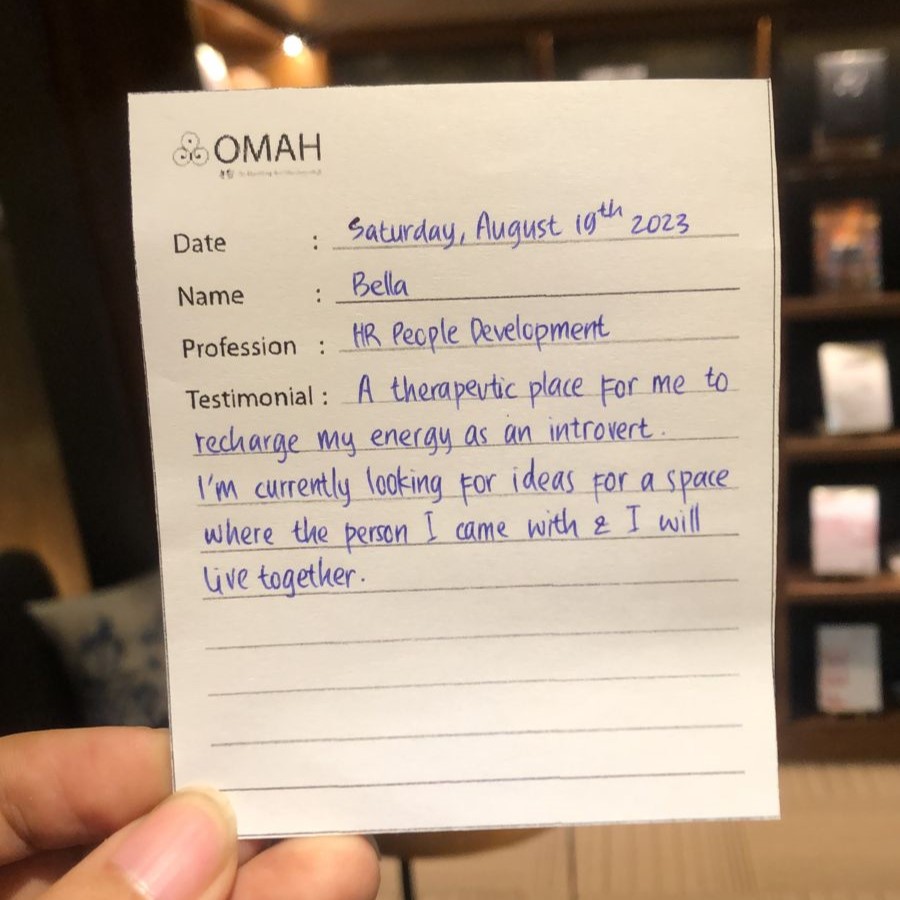 OMAH
Date : Saturday, August 19th 2023
Name : Bella
Profession : HR People Development
Testimonial : A therapeutic place for me to
recharge my energy as an introvert.
I'm currently looking for ideas for a space
where the person I came with & I will
live together.